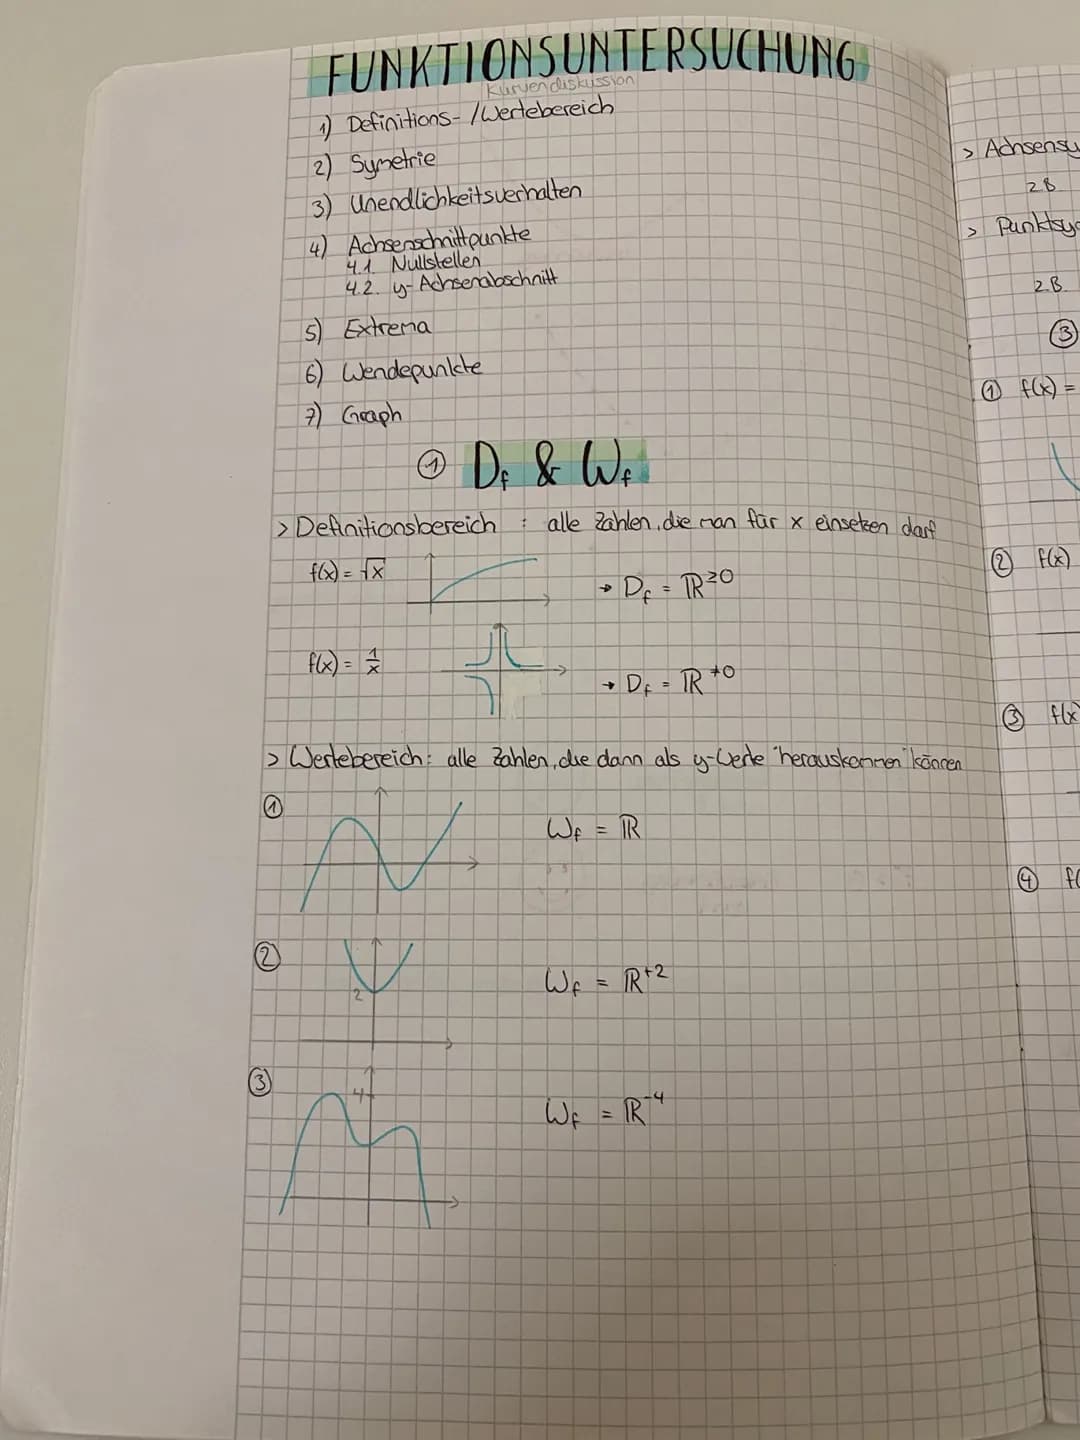 FUNKTIONSUNTERSUCHUNG
Kurvendiskussion
1) Definitions-/Wertebereich
2) Symetrie
3) Unendlichkeitsverhalten
4) Achsenschnittpunkte
4.1. Nullstellen
4.2. y-Achsenabschnitt
5) Extrema
6) Wendepunkte
7) Graph
① Df & Wf
> Definitionsbereich : alle Zahlen, die man für x einsetzen darf
f(x) = √x → Df = ℝ≥0
f(x) = 1/x → Df = ℝ≠0
> Wertebereich: alle Zahlen, die dann als y-Werte "herauskommen" können
① Wf = ℝ
② 2 Wf = ℝ+2
③ 4 Wf = ℝ-4
> Achsensy
zB
> Punktsy
zB.
③
① f(x) =
② f(x)
③ f(x)
④ f(